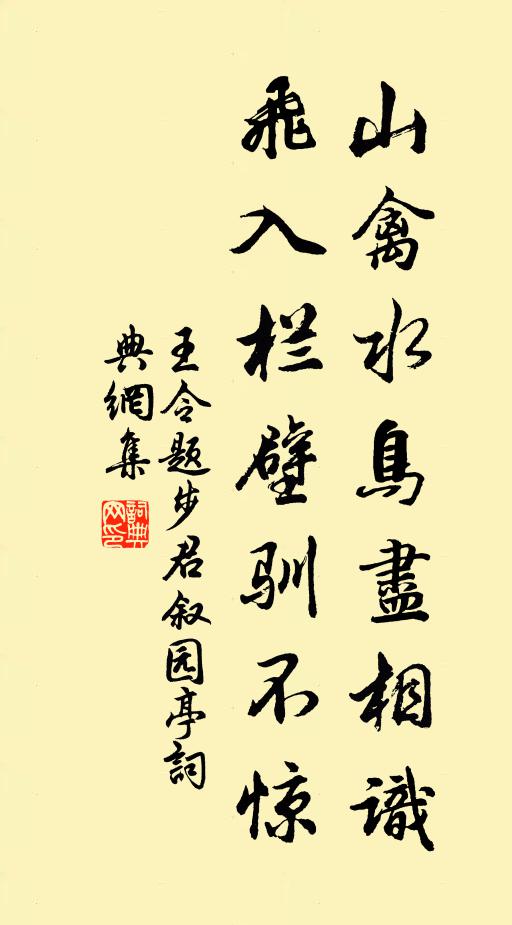 山禽水鳥盡相識
飛入栏壁驯不惊
王令题步君叙园亭詞
典網集
詞典
网印